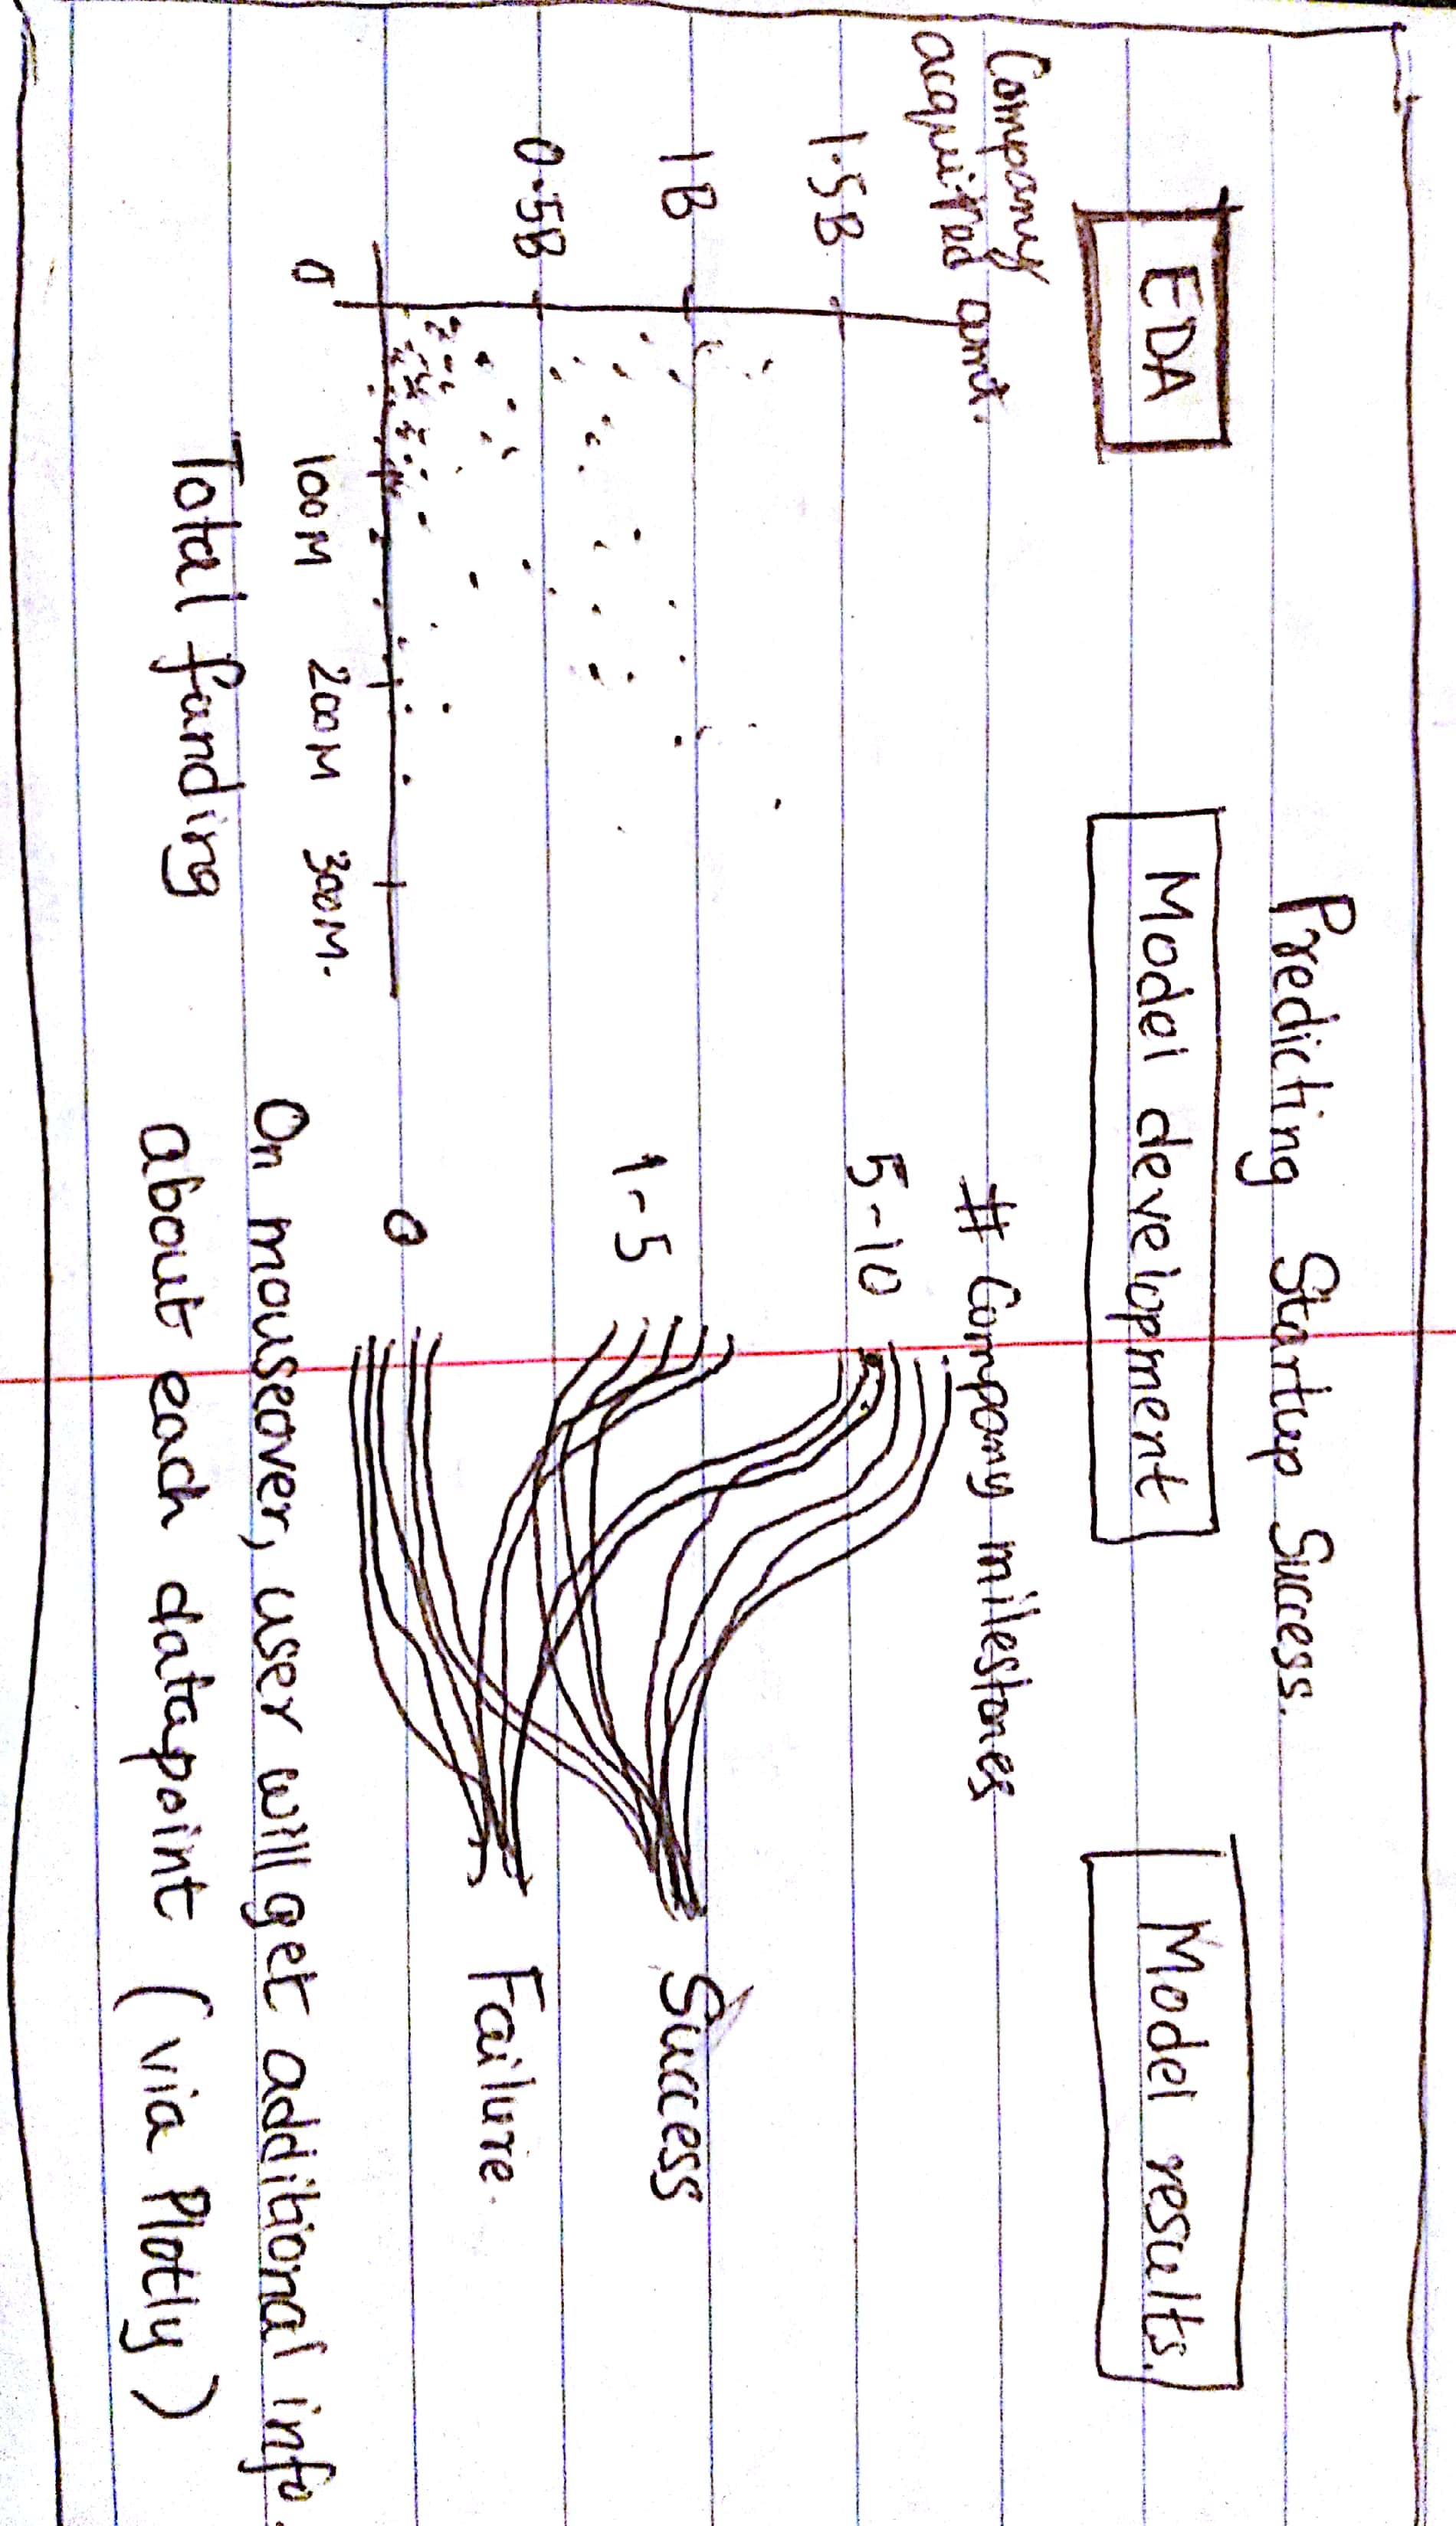 Predicting Startup Success.
EDA
Model development
Model results.
Company
acquired amt.
1.5B
1B
0.5B
0
100M
200M
300M.
Total funding
# Company milestones
5-10
1-5
0
Success
Failure.
On mouseover, user will get additional info.
about each datapoint (via Plotly)